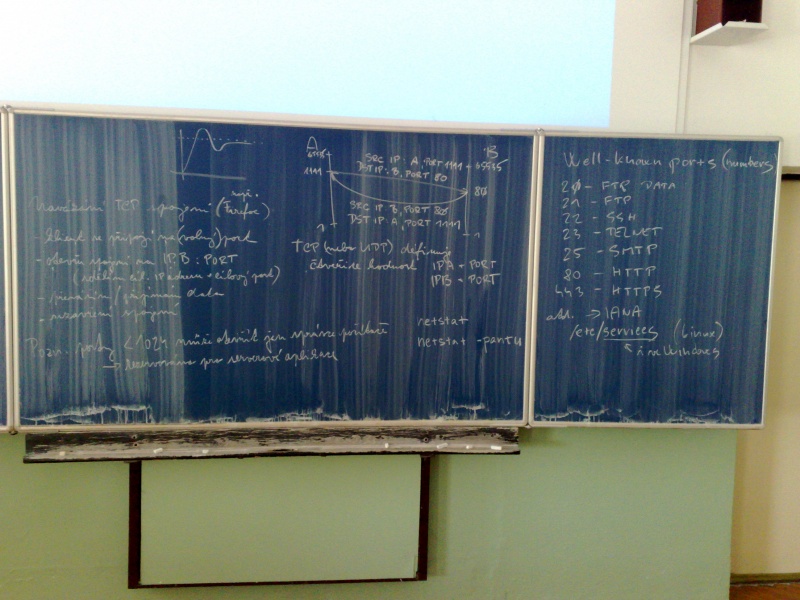 např.
TCP spojení (Firefox)
- klient se připojí na (volný) port
- otevře spojení na IP.B : PORT
(sdělím cíl. IP adresu + cílový port)
- přenáším / přijímám data
- uzavření spojení
Pozn. porty < 1024 může otevřít jen správce počítače
→ rezervována pro serverové aplikace
A
B
1111
SRC IP: A, PORT 1111
DST IP: B, PORT 80
80
SRC IP B, PORT 80
DST IP: A, PORT 1111
1
1
TCP (nebo UDP) definuje
čtveřice hodnot IPA - PORT
IPB - PORT
netstat
netstat -pantu
Well-known ports (numbers)
20 - FTP DATA
21 - FTP
22 - SSH
23 - TELNET
25 - SMTP
80 - HTTP
443 - HTTPS
atd. → IANA
/etc/services (Linux)
i ve Windows